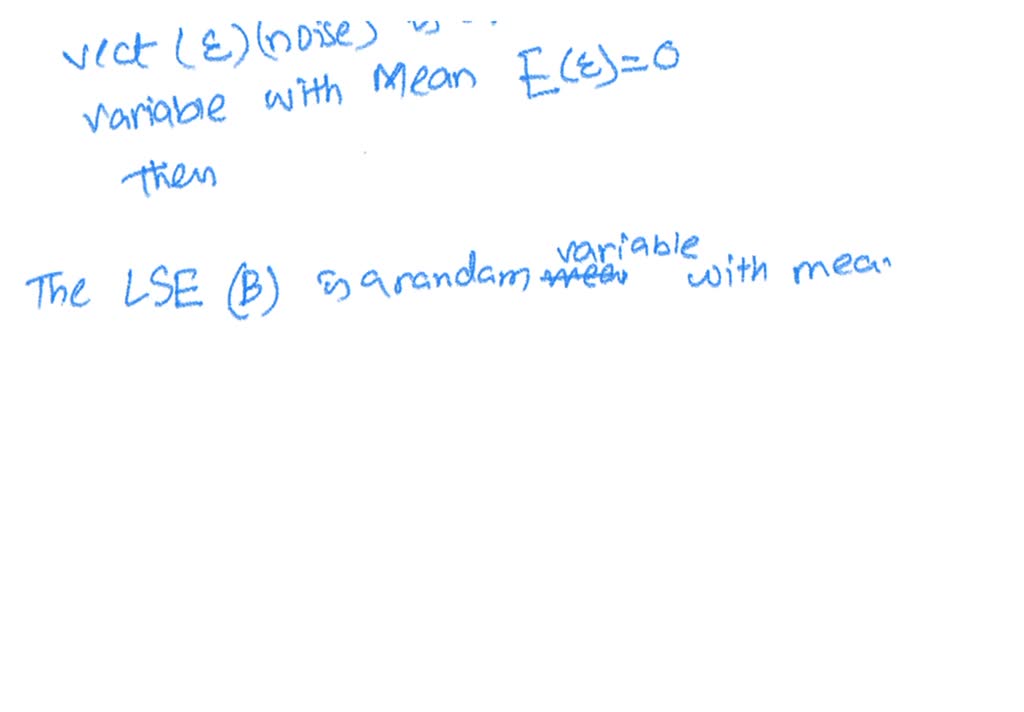 vect (ε) (noise) is
variable with Mean E(ε)=0
then
The LSE (B) is a random variable with mean